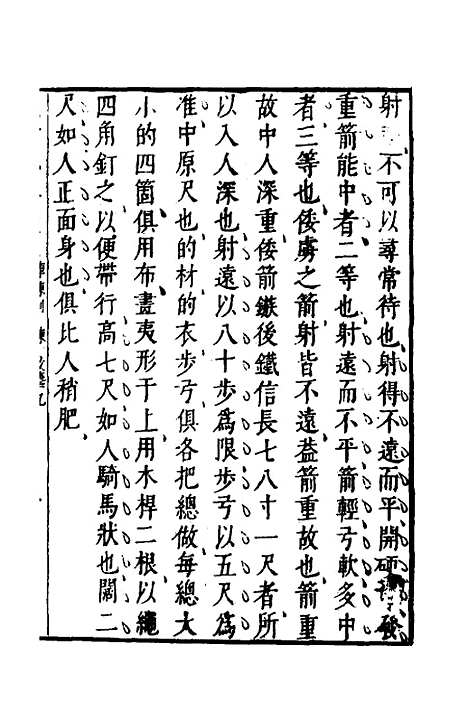 射 不可以尋常待也射得不遠而平開硬 發
重箭能中者二等也射遠而不平箭輕弓軟多中
者三等也倭虜之箭射皆不遠葢箭重故也箭重
故中人深重倭箭鏃後鐵信長七八寸一尺者所
以入人深也射遠以八十步爲限步弓以五尺爲
准中原尺也的材的衣步弓俱各把總做每總大
小的四箇俱用布畫夷形于上用木桿二根以繩
四角釘之以便帶行高七尺如人騎馬狀也闊二
尺如人正面身也俱比人稍肥